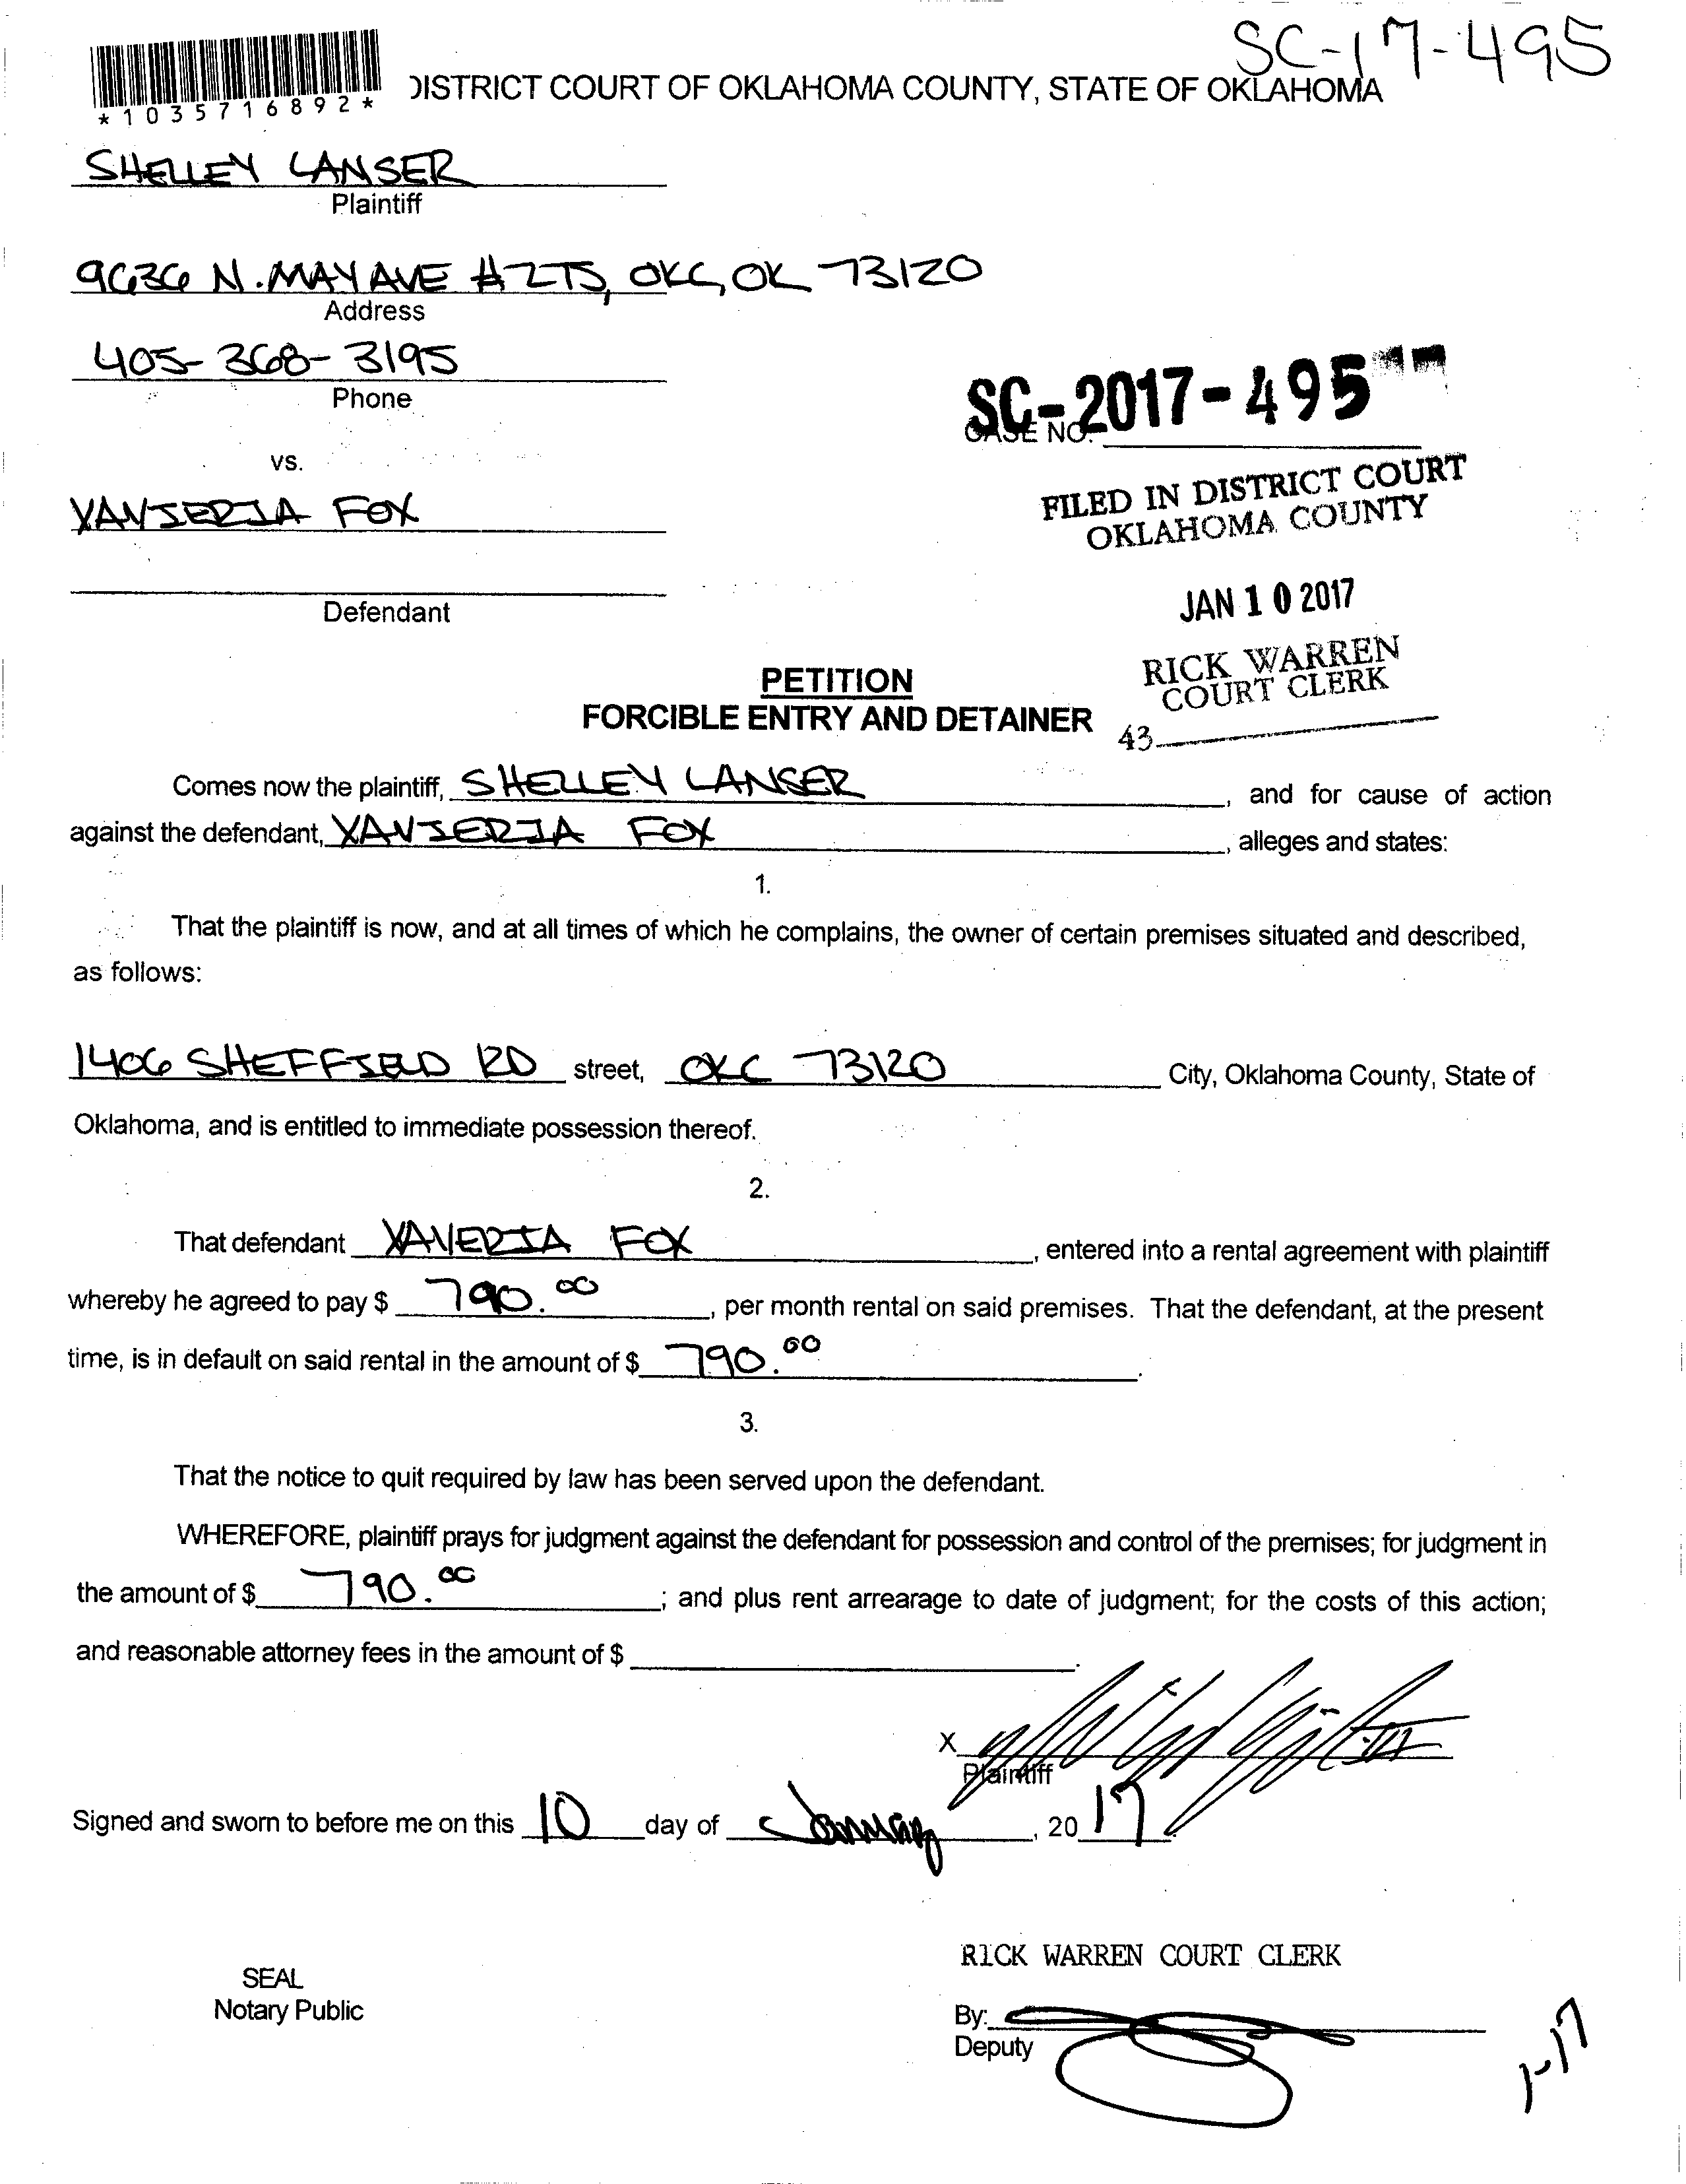 SC-17-495
*1035716892*
DISTRICT COURT OF OKLAHOMA COUNTY, STATE OF OKLAHOMA
SHELLEY LANSER
Plaintiff
9636 N. MAY AVE #275, OKC, OK 73120
Address
405-368-3195
Phone
SC-2017-495
CASE NO.
vs.
FILED IN DISTRICT COURT
OKLAHOMA COUNTY
XAVIERIA FOX
JAN 10 2017
Defendant
RICK WARREN
COURT CLERK
43
PETITION
FORCIBLE ENTRY AND DETAINER
Comes now the plaintiff, SHELLEY LANSER, and for cause of action
against the defendant, XAVIERIA FOX, alleges and states:
1.
That the plaintiff is now, and at all times of which he complains, the owner of certain premises situated and described,
as follows:
1406 SHEFFIELD RD street, OKC 73120 City, Oklahoma County, State of
Oklahoma, and is entitled to immediate possession thereof.
2.
That defendant XAVERIA FOX, entered into a rental agreement with plaintiff
whereby he agreed to pay $ 790.00, per month rental on said premises. That the defendant, at the present
time, is in default on said rental in the amount of $ 790.00.
3.
That the notice to quit required by law has been served upon the defendant.
WHEREFORE, plaintiff prays for judgment against the defendant for possession and control of the premises; for judgment in
the amount of $ 790.00; and plus rent arrearage to date of judgment; for the costs of this action;
and reasonable attorney fees in the amount of $
X
Plaintiff
Signed and sworn to before me on this 10 day of January, 2017.
RICK WARREN COURT CLERK
SEAL
Notary Public
By:
Deputy
1-17